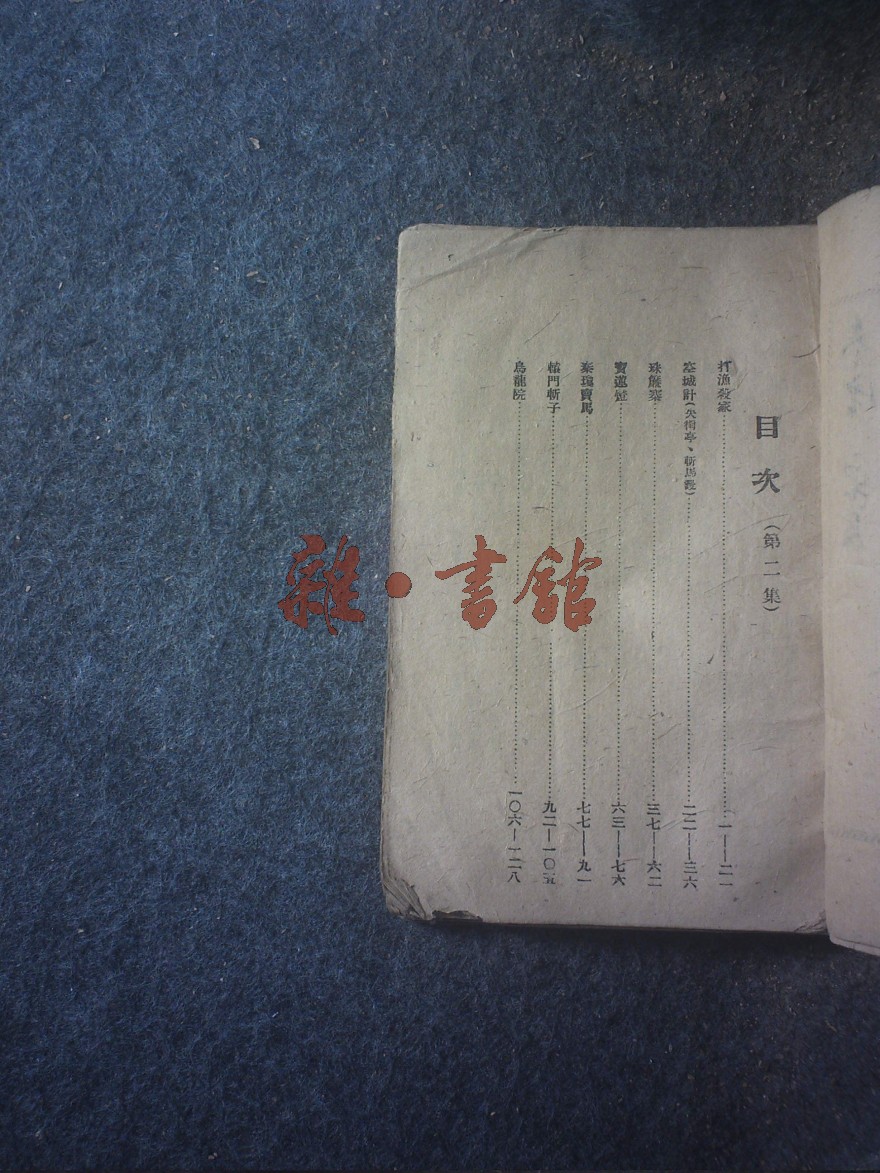 目次（第二集）
打漁殺家……一——二一
空城計（失街亭、斬馬謖）……二二——三六
珠簾寨……三七——六二
寶蓮燈……六三——七六
秦瓊賣馬……七七——九一
轅門斬子……九二——一〇五
烏龍院……一〇六——一二八
雜·書館